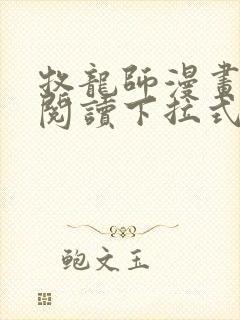 牧龍師漫畫
閱讀下拉式
鲍文玉